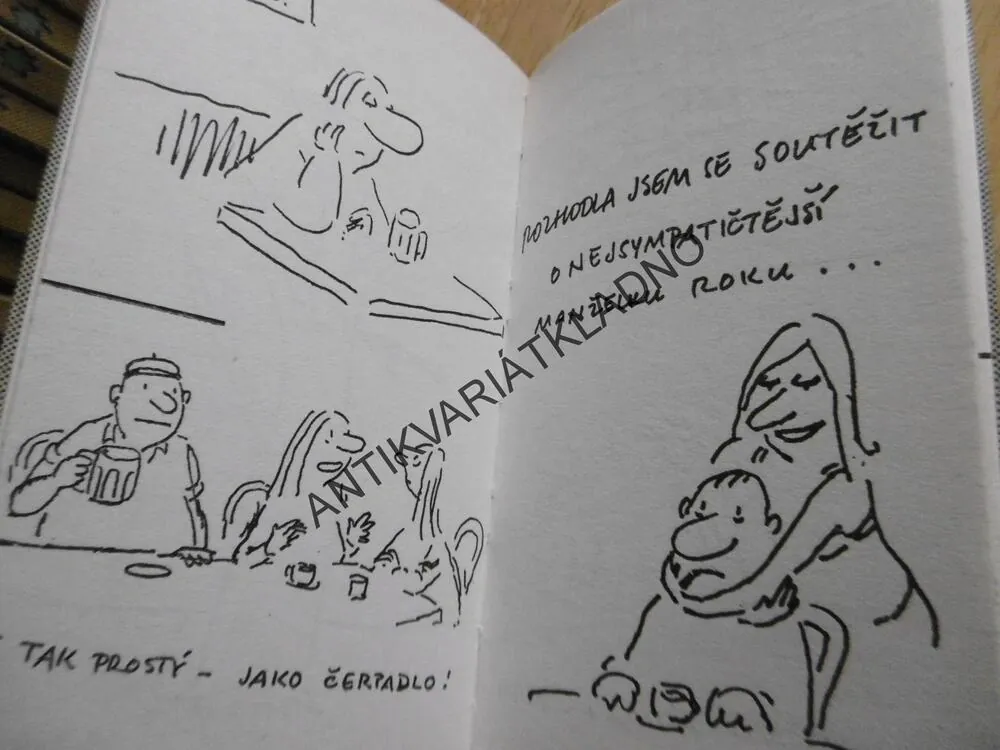 TAK PROSTÝ - JAKO ČERPADLO!
ROZHODLA JSEM SE SOUTĚŽIT
O NEJSYMPATIČTĚJŠÍ
MANŽELKU ROKU...
ANTIKVARIÁTKLADNO